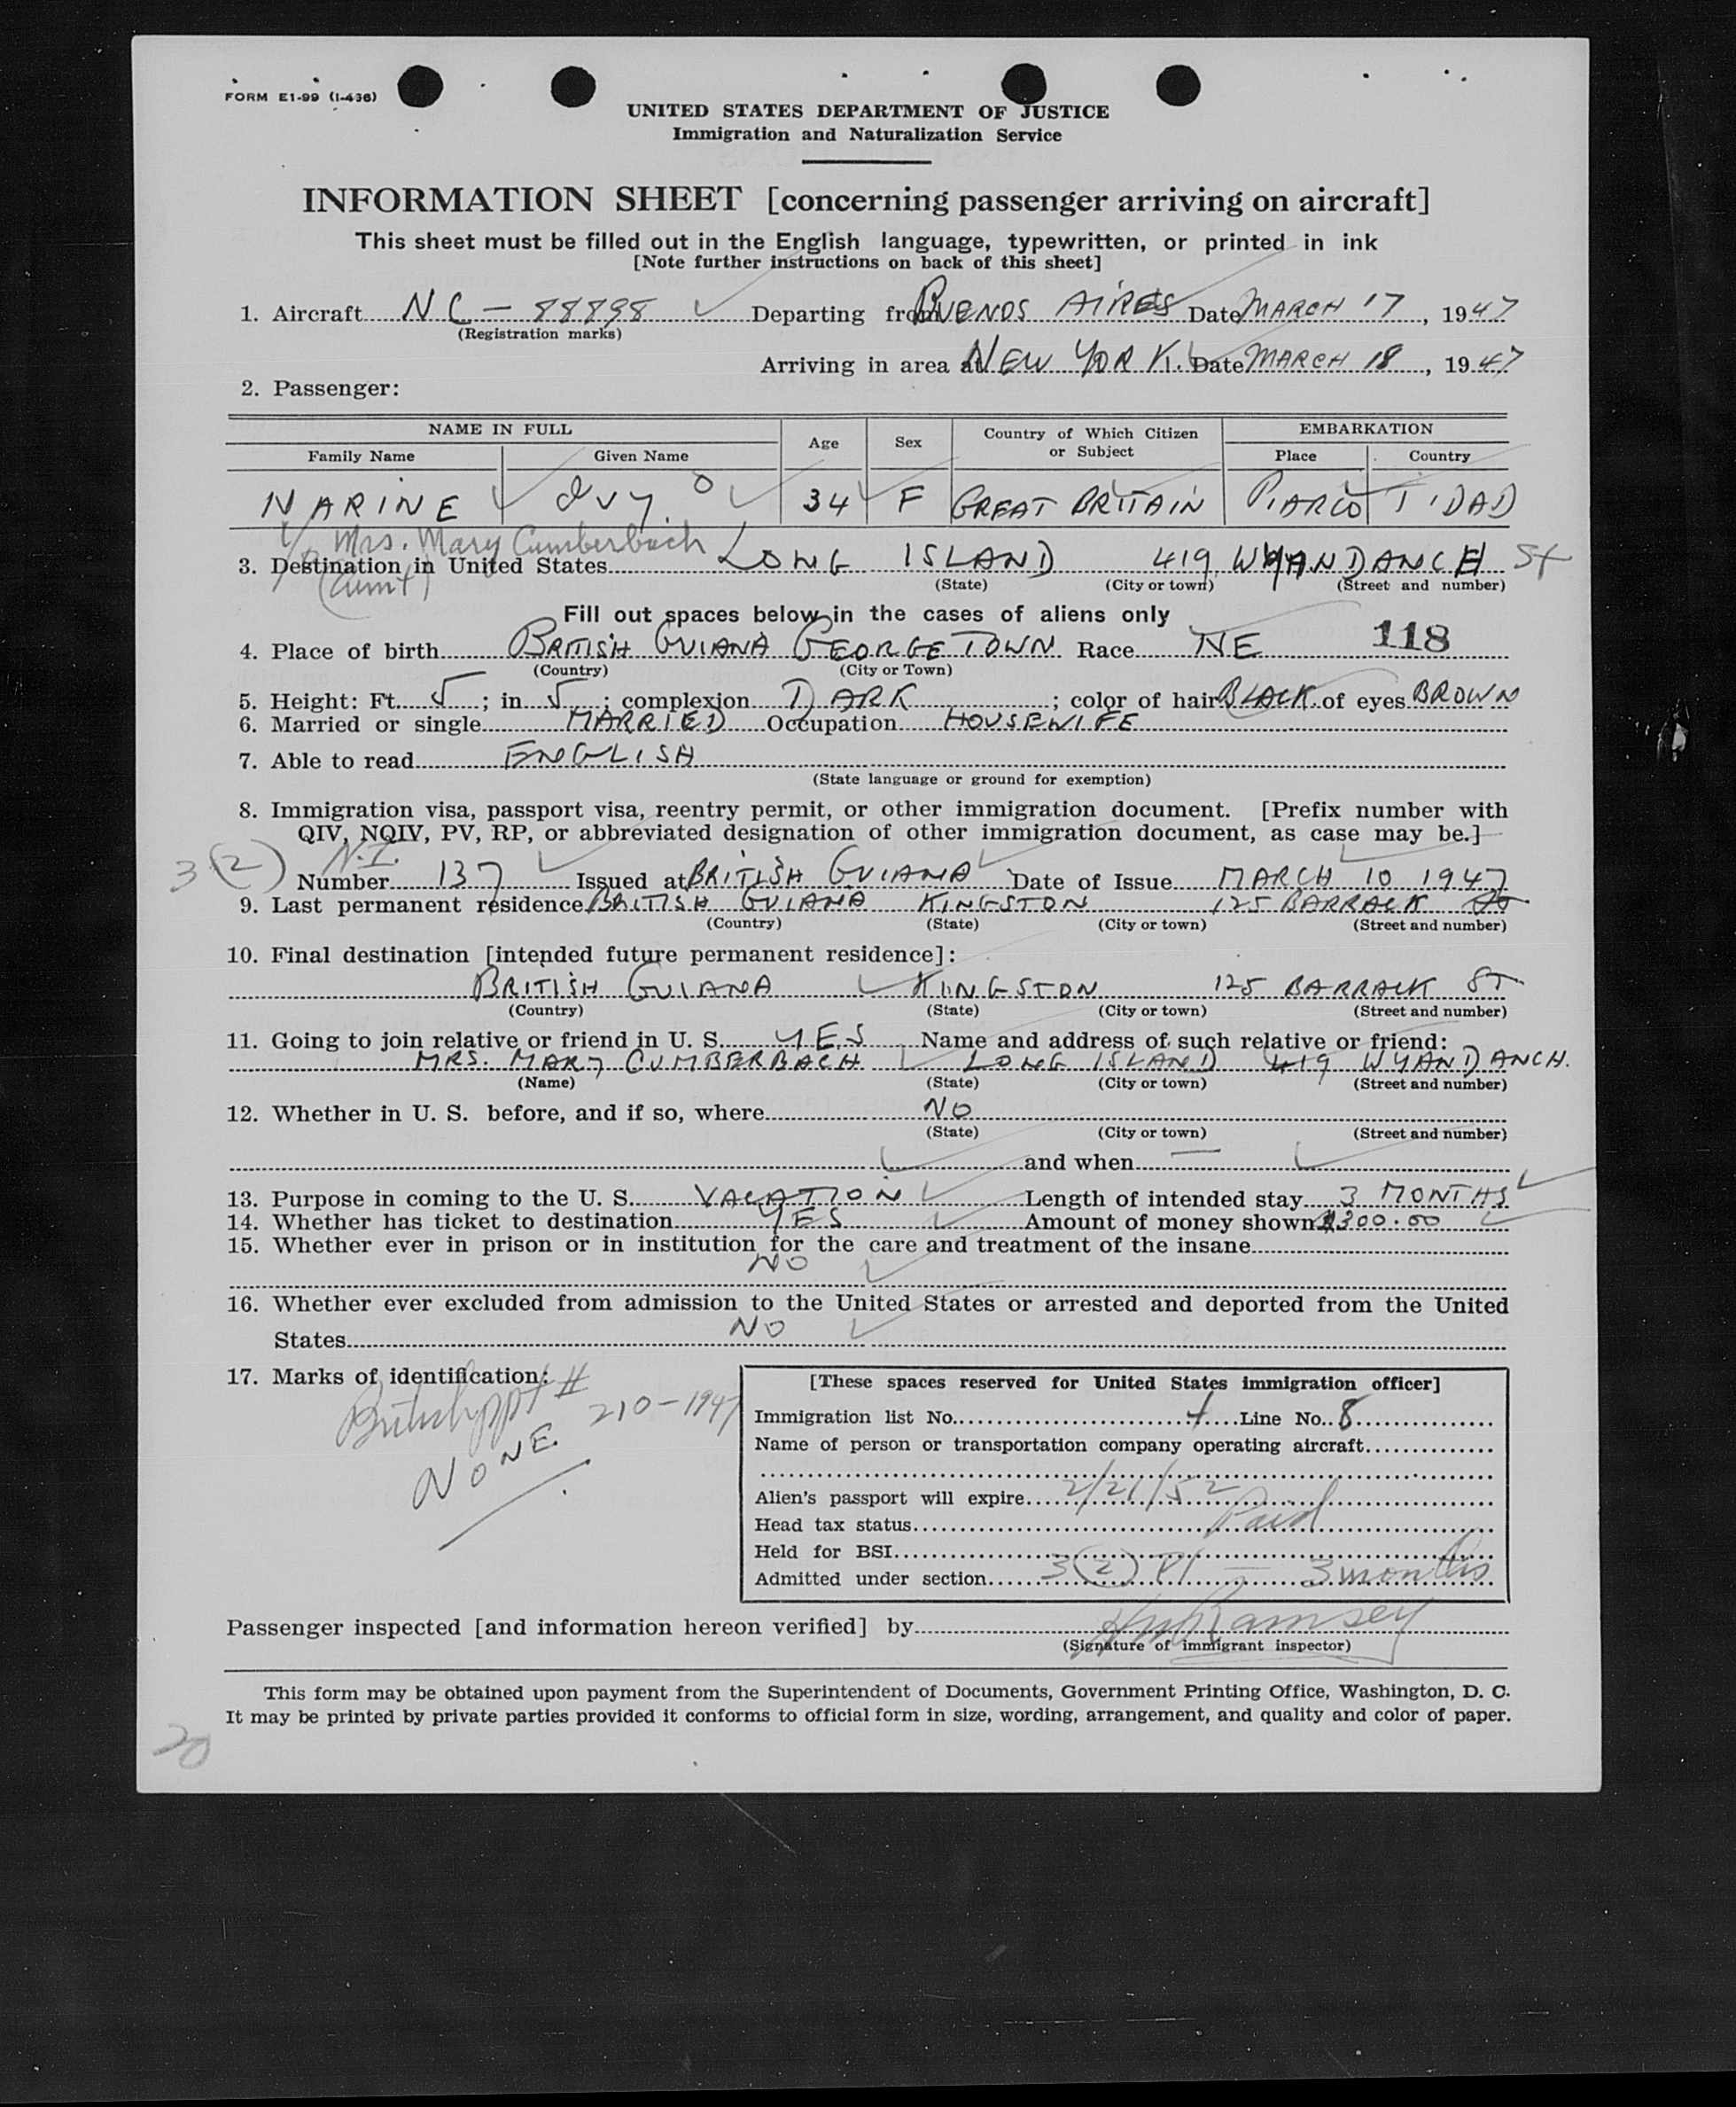 FORM E1-99 (I-436)
UNITED STATES DEPARTMENT OF JUSTICE
Immigration and Naturalization Service
INFORMATION SHEET [concerning passenger arriving on aircraft]
This sheet must be filled out in the English language, typewritten, or printed in ink
[Note further instructions on back of this sheet]
1. Aircraft NC-88898 Departing from BUENOS AIRES Date MARCH 17, 1947
(Registration marks)
Arriving in area at NEW YORK. Date MARCH 18, 1947
2. Passenger:
NAME IN FULL Age Sex Country of Which Citizen or Subject EMBARKATION
Family Name Given Name Place Country
NARINE Ivy. O 34 F GREAT BRITAIN PIARCO T'DAD
Mrs. Mary Cumberbach
3. Destination in United States LONG ISLAND 419 WYANDANCH St
(aunt) (State) (City or town) (Street and number)
Fill out spaces below in the cases of aliens only
118
4. Place of birth BRITISH GUIANA GEORGETOWN Race NE
(Country) (City or Town)
5. Height: Ft. 5; in. 5; complexion DARK; color of hair BLACK of eyes BROWN
6. Married or single MARRIED Occupation HOUSEWIFE
7. Able to read ENGLISH
(State language or ground for exemption)
8. Immigration visa, passport visa, reentry permit, or other immigration document. [Prefix number with
QIV, NQIV, PV, RP, or abbreviated designation of other immigration document, as case may be.]
3(2) N.I.
Number 137 Issued at BRITISH GUIANA Date of Issue MARCH 10 1947
9. Last permanent residence BRITISH GUIANA KINGSTON 125 BARRACK St
(Country) (State) (City or town) (Street and number)
10. Final destination [intended future permanent residence]:
BRITISH GUIANA KINGSTON 125 BARRACK ST
(Country) (State) (City or town) (Street and number)
11. Going to join relative or friend in U. S. YES Name and address of such relative or friend:
MRS. MARY CUMBERBACH LONG ISLAND 419 WYANDANCH.
(Name) (State) (City or town) (Street and number)
12. Whether in U. S. before, and if so, where NO
(State) (City or town) (Street and number)
and when —
13. Purpose in coming to the U. S. VACATION Length of intended stay 3 MONTHS
14. Whether has ticket to destination YES Amount of money shown $300.00
15. Whether ever in prison or in institution for the care and treatment of the insane
NO
16. Whether ever excluded from admission to the United States or arrested and deported from the United
States NO
17. Marks of identification:
British ppt # 210-1947
NONE.
[These spaces reserved for United States immigration officer]
Immigration list No. 4 Line No. 8
Name of person or transportation company operating aircraft
Alien's passport will expire 2/21/52
Head tax status Paid
Held for BSI
Admitted under section 3(2) P1 — 3 months
Passenger inspected [and information hereon verified] by Ramsey
(Signature of immigrant inspector)
This form may be obtained upon payment from the Superintendent of Documents, Government Printing Office, Washington, D. C.
It may be printed by private parties provided it conforms to official form in size, wording, arrangement, and quality and color of paper.
20